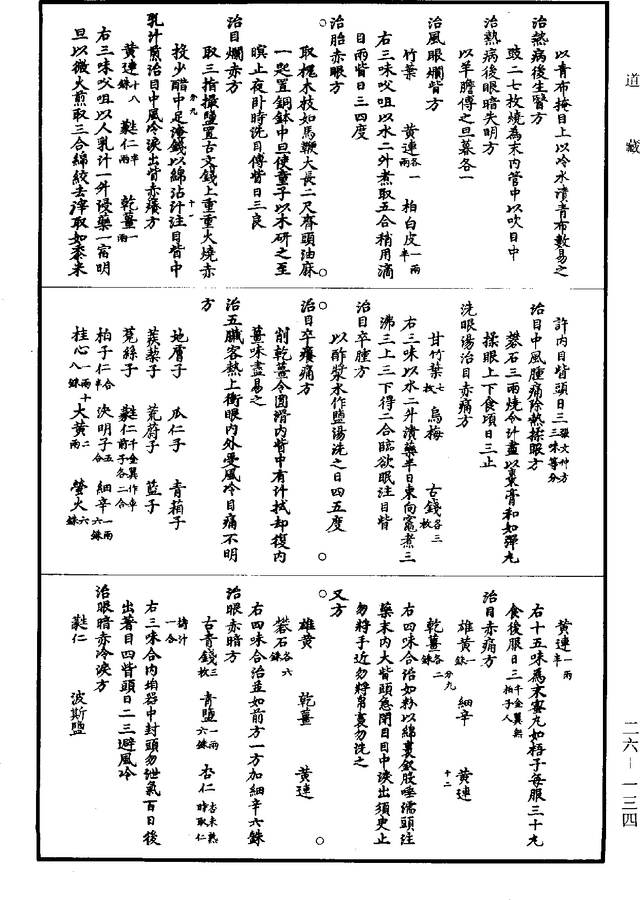 道藏
以青布掩目上以冷水漬青布數易之
治熱病後生瞖方
豉二七枚燒為末內管中以吹目中
治熱病後眼暗失明方
以羊膽傅之旦暮各一
治風眼爛眥方
竹葉 黃連各一兩 柏白皮一兩半
右三味㕮咀以水二升煮取五合稍用滴
目兩眥日三四度
治胎赤眼方
取槐木枝如馬鞭大長二尺齊頭油麻
一匙置銅鉢中旦使童子以木研之至
瞑止夜卧時洗目傅眥日三良
治目爛赤方
取三指撮鹽置古文錢上重重火燒赤
投少醋中足淹錢以綿沾汁注目眥中
乳汁煎治目中風冷淚出眥赤癢方
黃連十八分 蕤仁半兩 乾薑一兩
右三味㕮咀以人乳汁一升浸藥一宿明
旦以微火煎取三合綿絞去滓取如黍米
許內目眥頭日三張文仲方三味等分
治目中風腫痛除熱揉眼方
礬石三兩燒令汁盡以棗膏和如彈丸
揉眼上下食頃日三止
洗眼湯治目赤痛方
甘竹葉七枚 烏梅 古錢各三枚
右三味以水二升漬藥半日東向竈煮三
沸三上三下得二合臨欲眠注目眥
治目卒腫方
以酢漿水作鹽湯洗之日四五度
治目卒癢痛方
削乾薑令圓滑內眥中有汁拭却復內
薑味盡易之
治五臟客熱上衝眼內外受風冷目痛不明
方
地膚子 瓜仁子 青葙子
蒺藜子 茺蔚子 藍子
菟絲子 蕤仁千金翼作車前子各二合
柏子仁一合半 決明子五合 細辛一兩六銖
桂心一兩十八銖 大黃二兩 螢火六銖
黃連一兩半
右十五味為末蜜丸如梧子每服三十丸
食後服日三千金翼無柏子人
治目赤痛方
雄黃一銖 細辛 黃連
乾薑各二銖
右四味合治如粉以綿裹釵股唾濡頭注
藥末內大眥頭急閉目目中淚出須臾止
勿將手近勿將帛裹勿洗之
又方
雄黃 乾薑 黃連
礬石各六銖
右四味合治並如前方一方加細辛六銖
治眼赤暗方
古青錢三枚 青鹽一兩六銖 杏仁杏未熟時取仁擣汁一合
右三味合內垍器中封頭勿泄氣百日後
出著目四眥頭日二三避風冷
治眼暗赤冷淚方
蕤仁 波斯鹽
二六—一三四